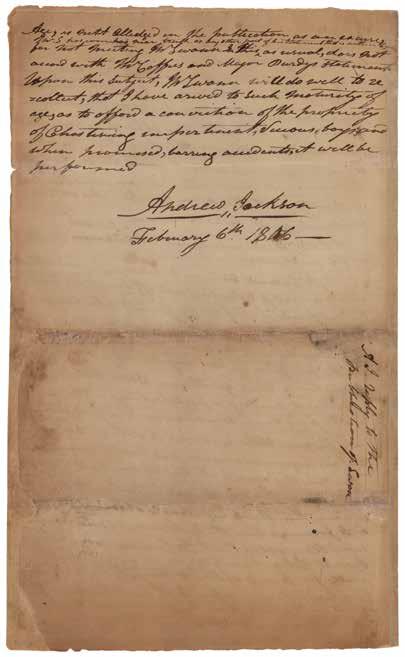 Age, is not alledged in the publication as an excuse
for not meeting Mr Swann & this, as usual, does not
accord with Mr Coffees and Major Purdys statement
Upon this subject, Mr Swann will do well to re
collect, that I have arived to such maturity of
age, as to afford a conviction of the propriety
of Chastising impertinent, boys, and
when promised, barring accidents, it will be
performed
Andrew Jackson
February 6th 1806
A J. reply to the
of Swann